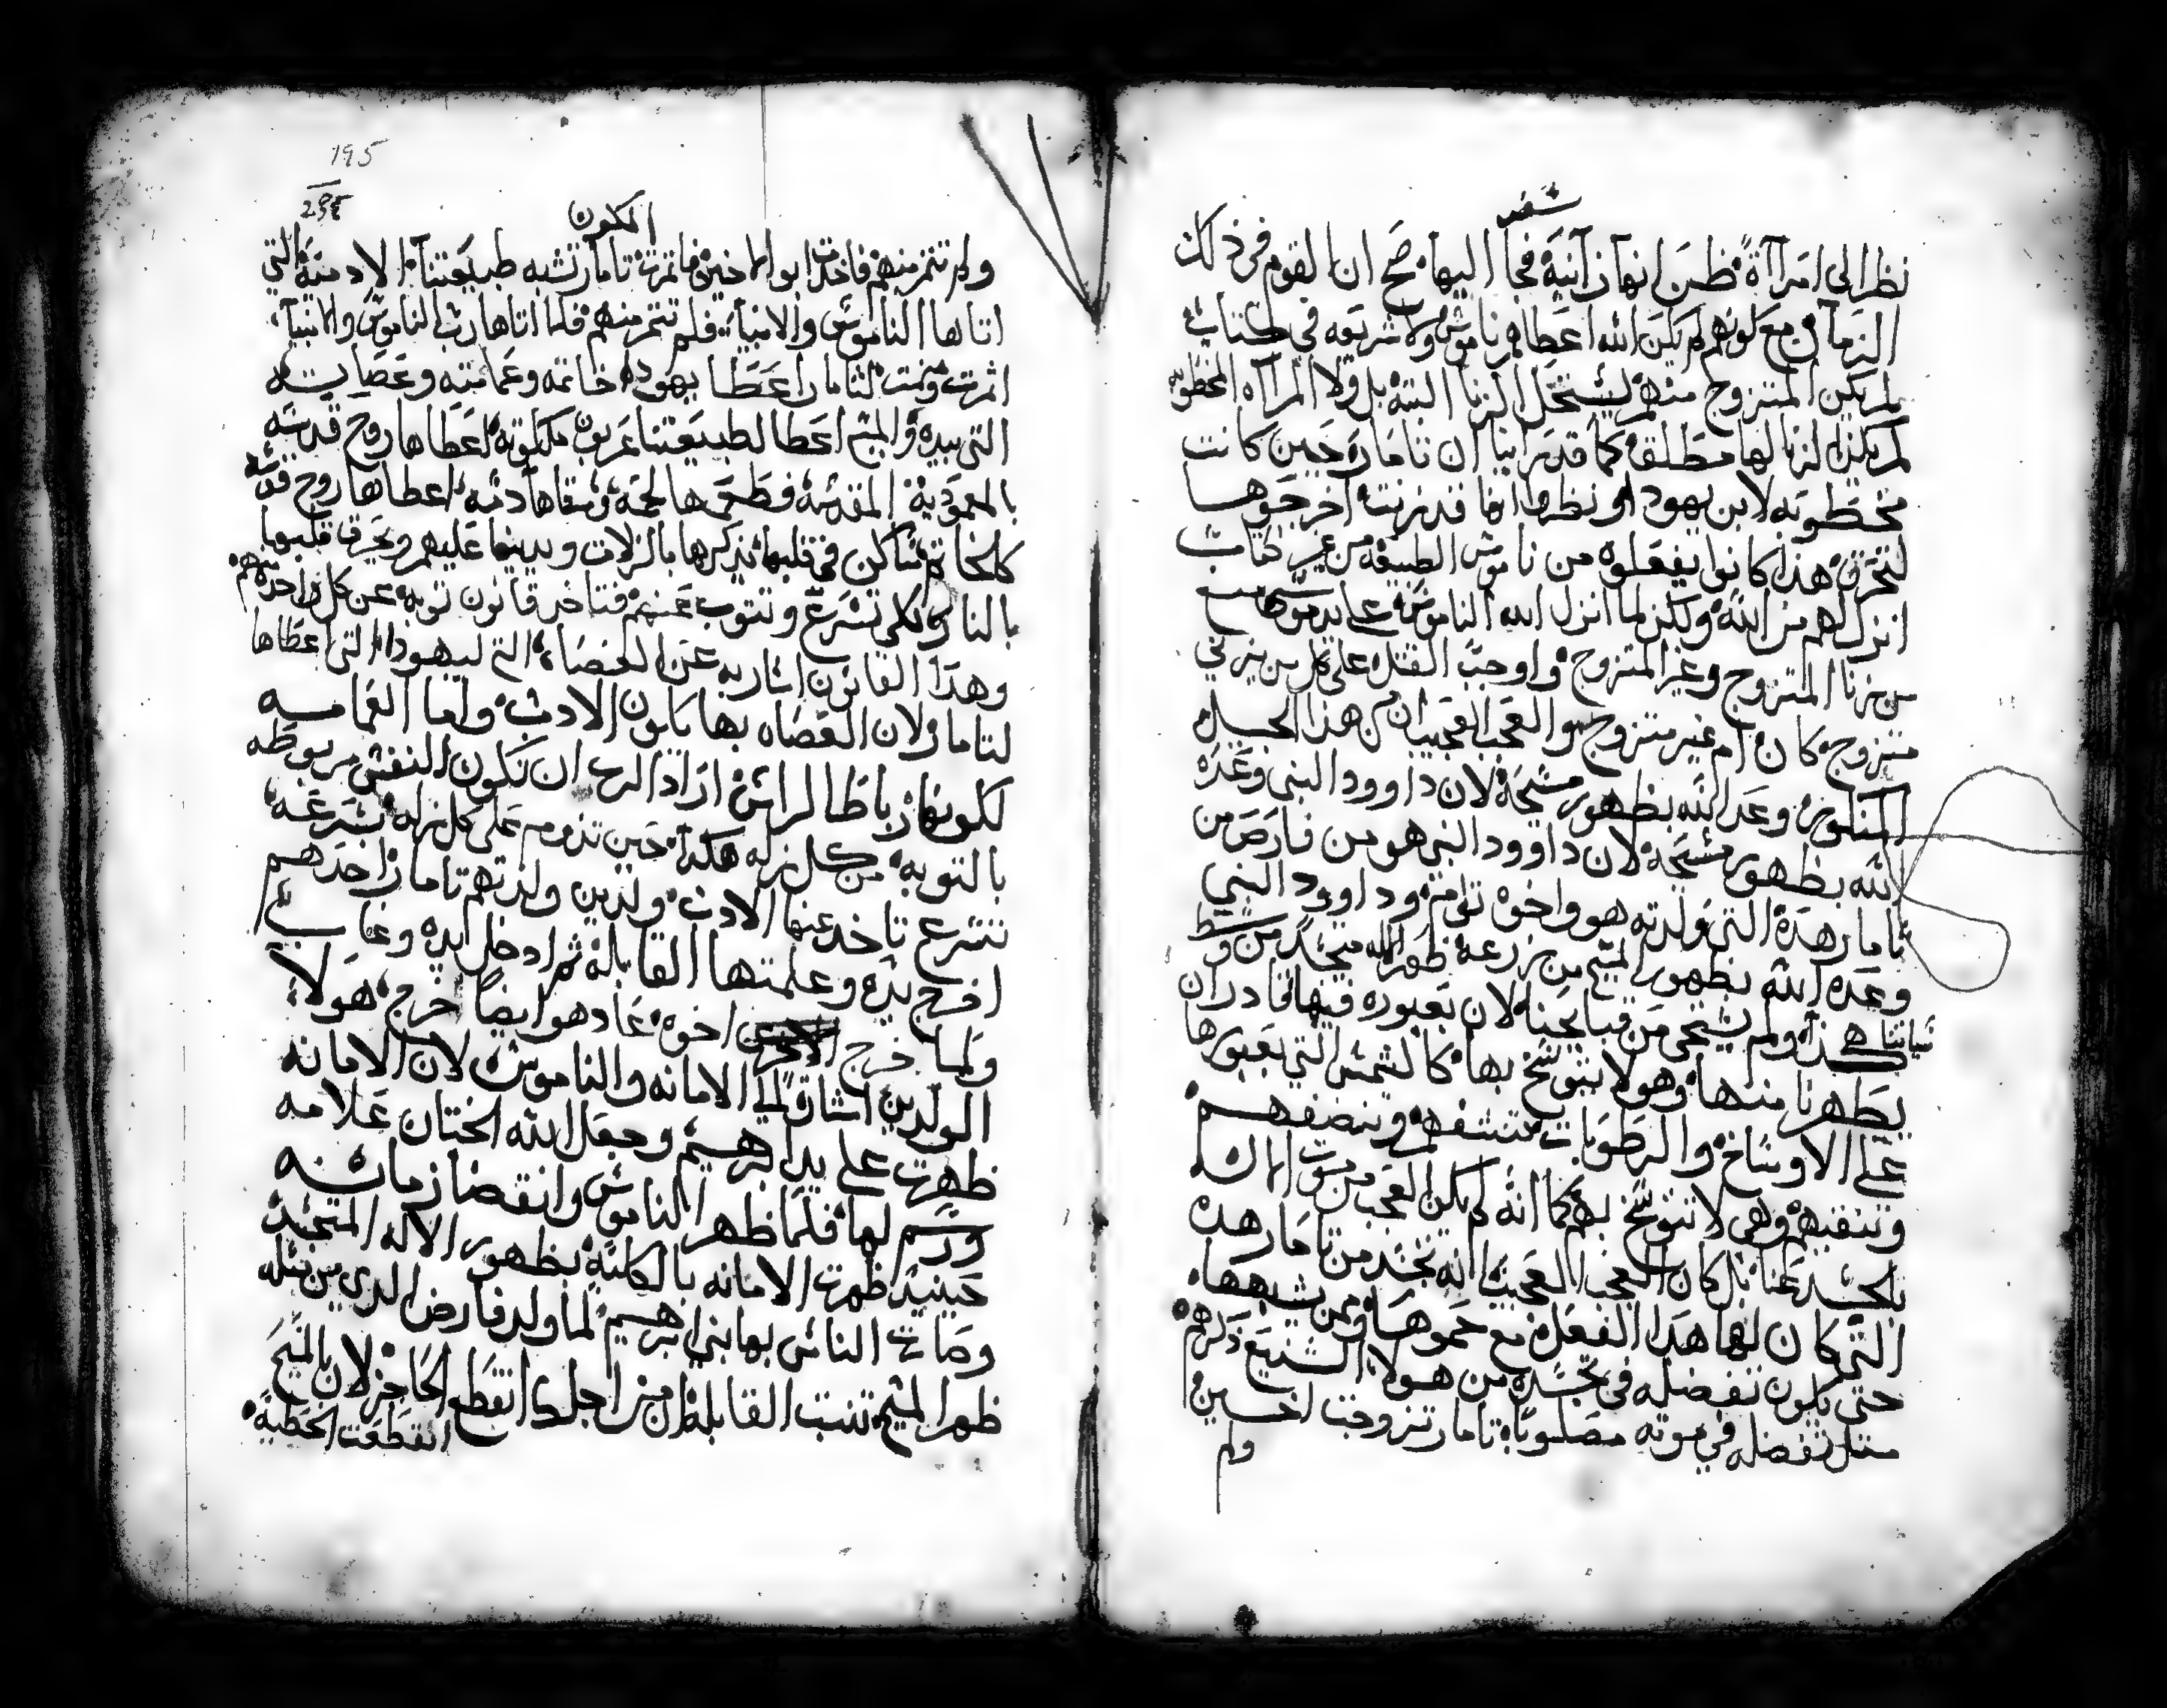 شفر
نظر الى امرآاةً ظن انها زآنية فجآ اليها صح ان القوم في ذلك
الزمآن مع كونهم لم يكن الله اعطاهم ناموس ولا شريعه في كتاب
لم يكن المتزوج منهم يستحل الزنا البته بل ولا المرآه المخطوبه
لم يكن الزنا لها مطلقه كما قد راينا ان تامار حين كانت
مخطوبه لابن يهودا ونظرها انها قد زنت اخرجوها
لتحرق هذا كانوا يفعلوه من ناموس الطبيعه من غير كتاب
انزل لهم من الله ولكن لما انزل الله الناموس على يد موسى
من زنا المتزوج وغير المتزوج واوجب القتل على كل من يزني
متزوج كان ام غير متزوج والعجب العجيب ان من هذا الجبل
وعد الله بظهور مسيحه لان داوود النبي وعده
الله بظهور مسيحه لان داوود النبي هو من فارص من
تامار هذه التي ولدته هو واخوه توامز وداوود النبي
وعده الله بظهور المسيح من زرعه ظهر الاله متجسد من وسط
هذه ولم يستحي من قبايحنا لان بعبوره فيها قادر ان
يطهرنا منها وهو لا يتوسخ بها كالشمس التي بعبورها
على الاوساخ والرطوبات تنشفهم وتنضفهم
وتنقيهم وهي لا تتوسخ بهم كما انه لم يكن العجب من موت الان
بالجسد عنا بل كان العجب العجيب انه تجسد من تامار هذه
التي كان لها هذا الفعل مع حموها ومن يشبهها
حتى يكون تفضله في تجسده من هولا الشنيع ذكرهم
مثل تفضله في موته مصلوبا تامار تزوجت اخين
ولم
195
المكون
ولم تتمر منهم فاخذت ابوا الاخين فاتمرت تامار تشبه طبيعتنا الادمية التي
اتاها الناموس والانبيا فلم تتمر منهم فلما اتاها رب الناموس والانبيا
اثرت ونمت لتامار اعطا يهودا خاتمه وعمامته وعصايته
التي بيده والمسيح اعطا لطبيعتنا عربون ملكوته اعطاها روح قدسه
بالمعمودية المقدسه فطعمها لحمه وسقاها دمه اعطاها روح قدسه
كالخاتم ساكن في قلبها يذكرها بالزلات ويدينها عليهم ويحرق قلبها
بالنار لكي تسرع وتتوب عنهم فتاخد قانون توبه عن كل واحده منهم
وهذا القانون اشار به عن العصاه التي ليهودا التي اعطاها
لتامار لان العصاه بها يكون الادب واما العمامه
لكونها رباطا للراس اراد الرب ان تكون النفس مربوطه
بالتوبه من كل زله هكذا حين تندم على كل زله بسرعه
تسرع تاخد عنها الادب ولدين ولدتهم تامار احدهم
اخرج يده وعلمتها القابله ثم ادخل ايده وغاب
ولما خرج اخوه عاد هو ايضا خرج هولا
الولدين اشاره الى الامانه والناموس لان الامانه
ظهرت على يد ابرهيم وجعل الله الختان علامه
ورسم لها فلما ظهر الناموس وانقضا زمانه
حينيد ظهرت الامانه بالكليه بظهور الاله المتجسد
وصارت الناس بها بني ابرهيم لما ولد فارص الدي من نسله
ظهر المسيح تنبت القابله ان من اجلك انقطع الحاجز لان بالمسيح
انقطعت الخطية